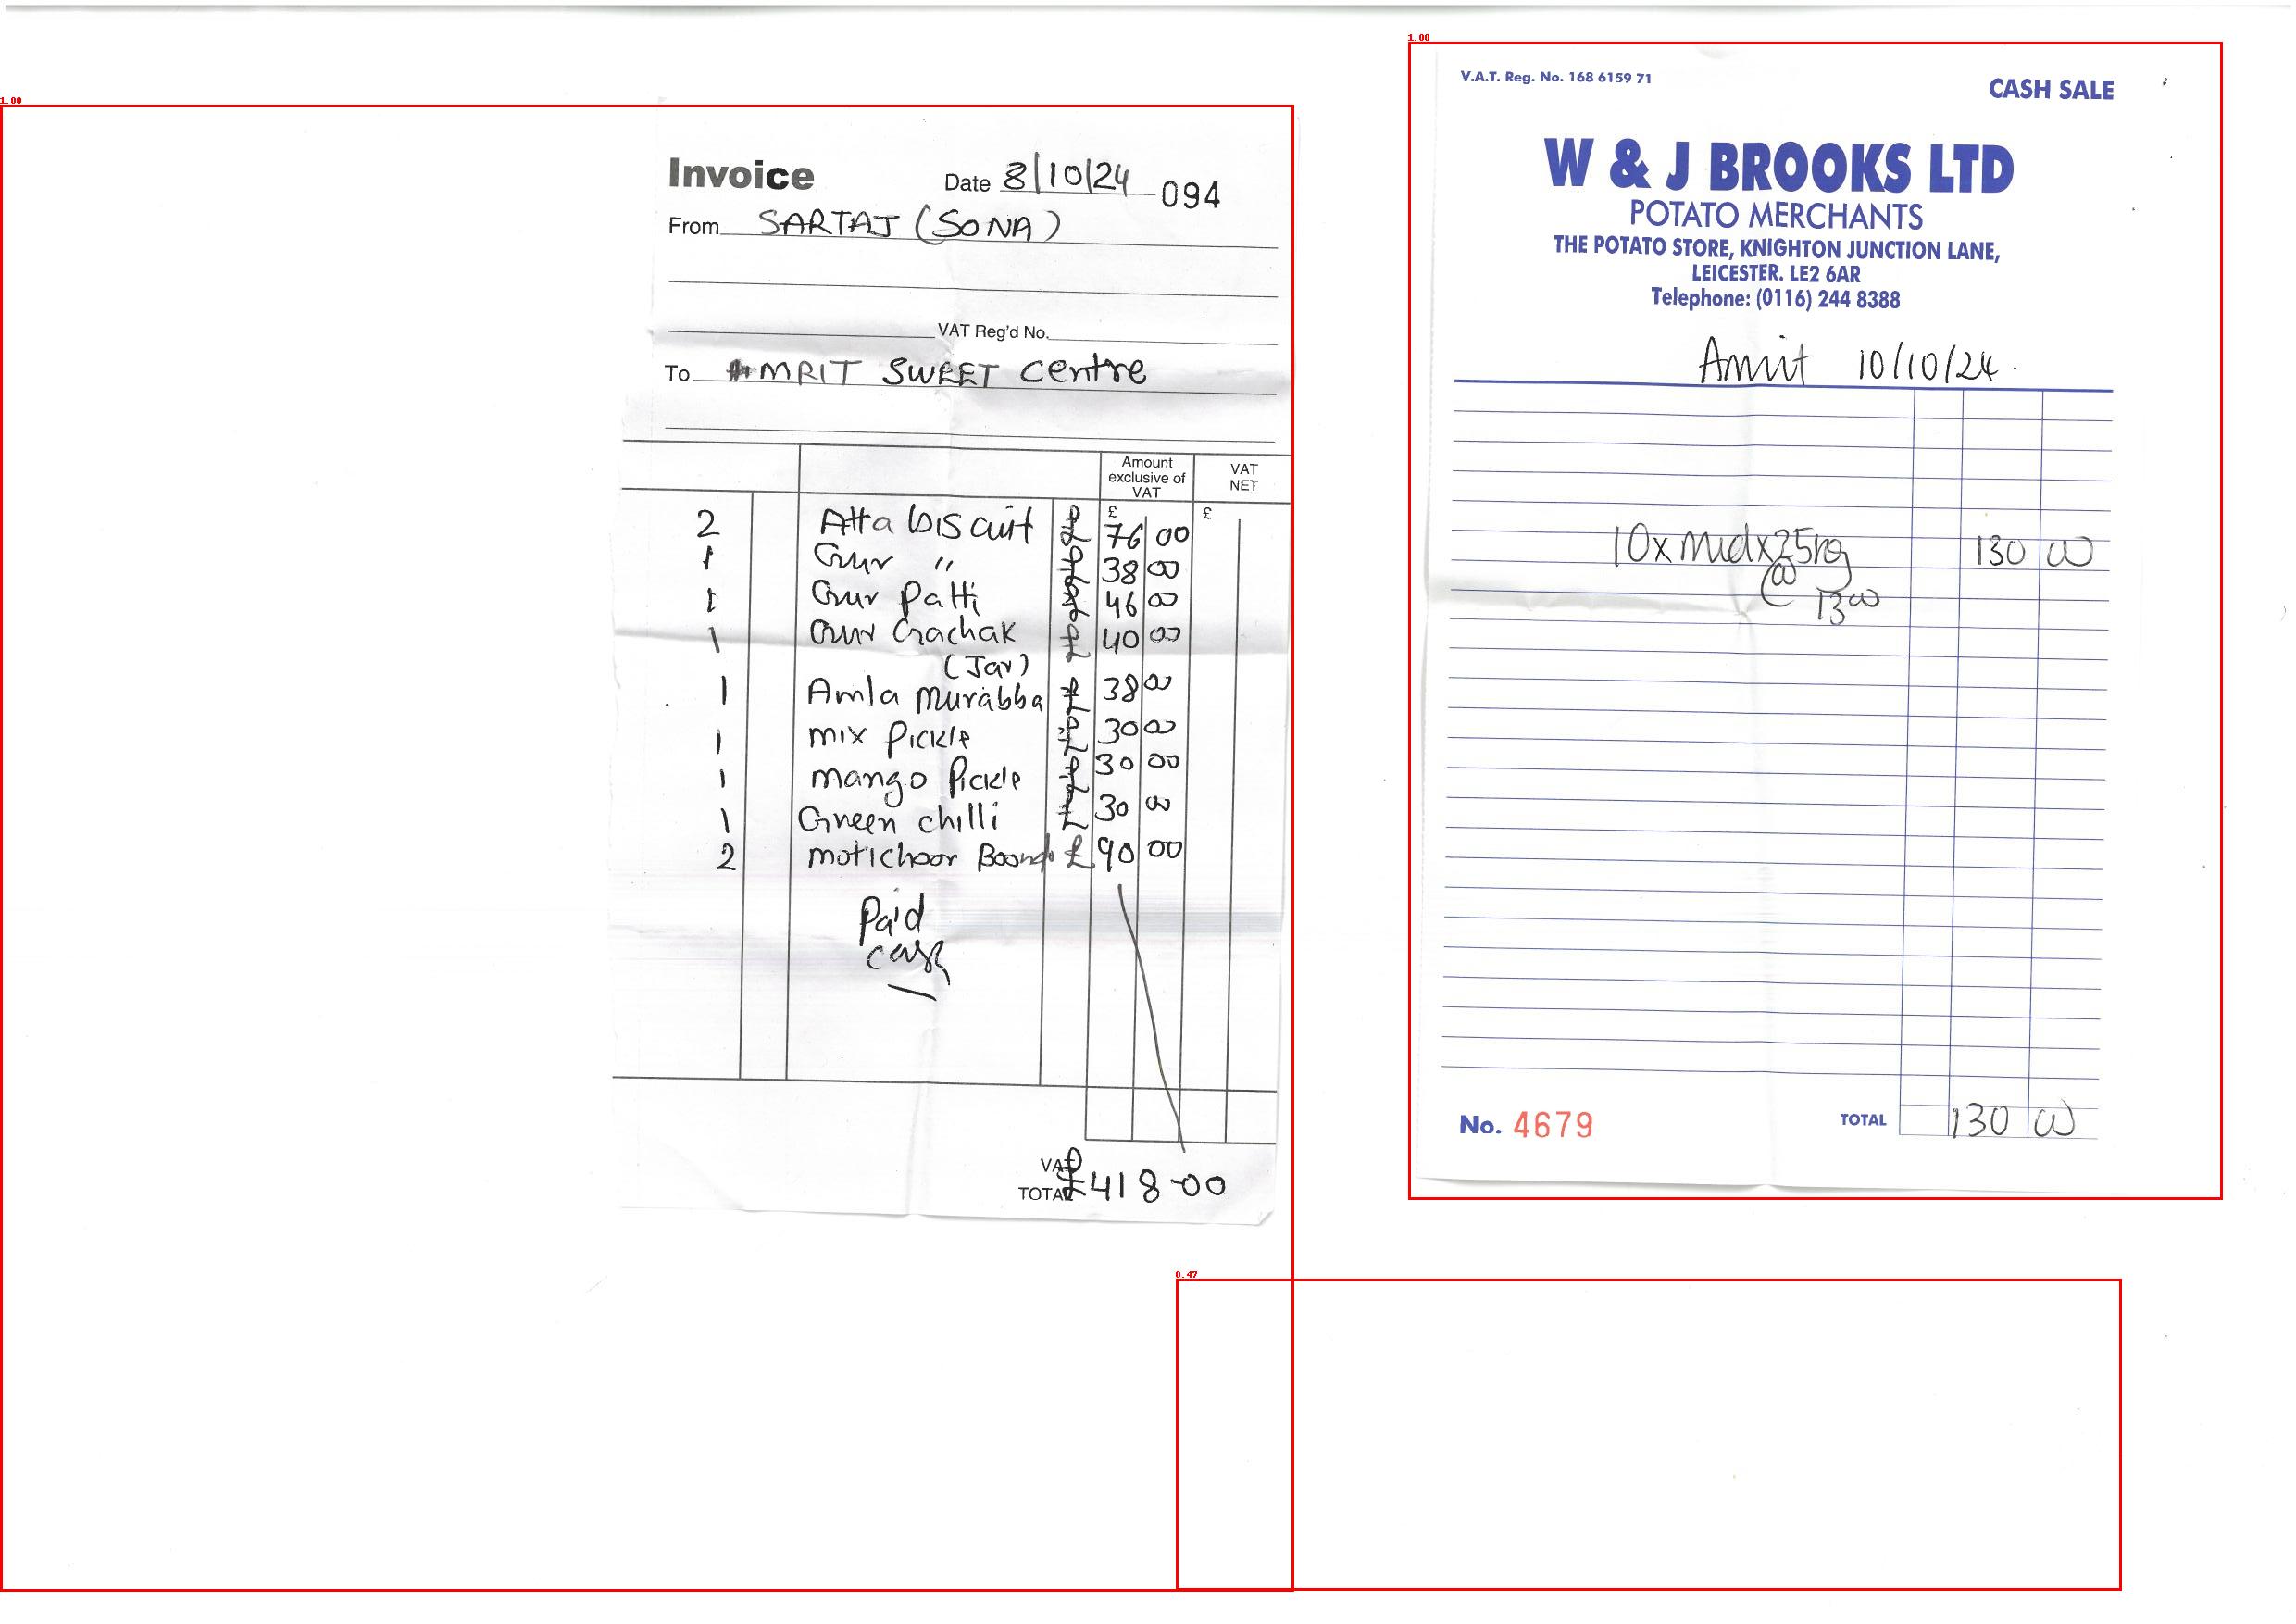 Invoice
Date 8/10/24 094
From SARTAJ (SONA)
VAT Reg'd No.
To AMRIT SWEET Centre
Amount exclusive of VAT
VAT NET
£ £
2 Atta biscuit £ 76 00
1 Gur " £ 38 00
1 Gur Patti £ 46 00
1 Gur Gachak £ 40 00
(Jar)
1 Amla Murabba £ 38 00
1 mix Pickle £ 30 00
1 mango Pickle £ 30 00
1 Green chilli £ 30 00
2 motichoor £ 90 00
Paid
cash
VAT
TOTAL £418-00
V.A.T. Reg. No. 168 6159 71
CASH SALE
W & J BROOKS LTD
POTATO MERCHANTS
THE POTATO STORE, KNIGHTON JUNCTION LANE,
LEICESTER. LE2 6AR
Telephone: (0116) 244 8388
Amrit 10/10/24.
10 x Mid x 25kg 130 00
@ 13 00
No. 4679
TOTAL 130 00
1.00
1.00
0.47